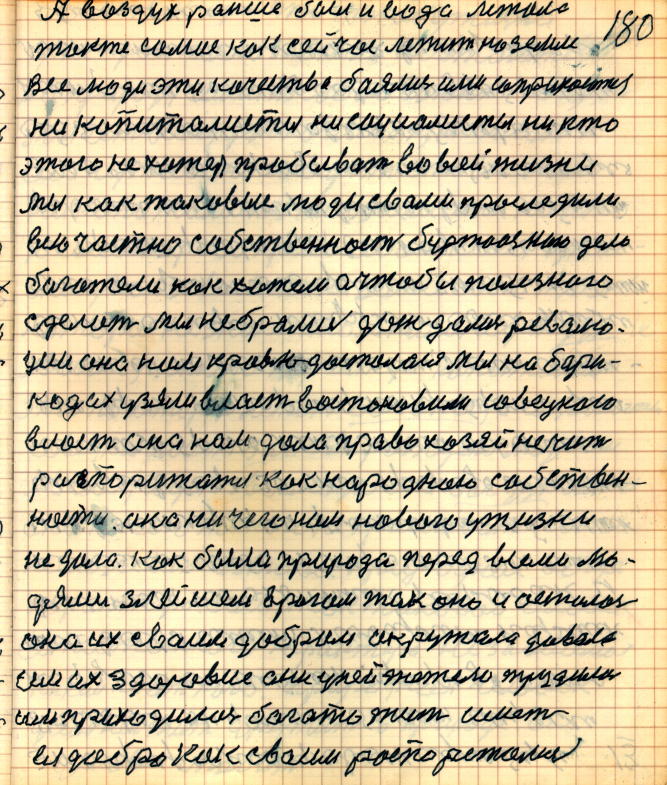 180
А воздух раньше был и вода летала
такте самое как сейчас летит по земле
Все люди эти качества баялись или
ни копиталисты ни социалисты ни кто
этого не хотел пробыват во всей жизни
мы как таковые люди свами проследили
всю частно собственност буржоазною дело
багатели как хотели а чтобы полезного
сделат мы не брались дождались револю-
ции она нам кровью досталася мы на бари-
кодах узяли власт востоновили совецкого
власт она нам дала право хозяйничит
распоритатся как народною собствен-
ности. она ничего нам нового у жизни
не дала. Как была природа перед всеми лю-
дями злейшем врагом так оно и осталось
она их сваим добром окружала давала
им их здоровие они у ней тежело трудились
им приходилось багато жит имет
ей добро как сваим распоретались